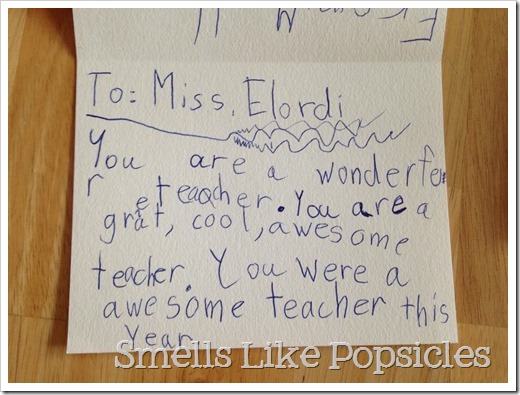 To: Miss. Elordi
You are a wonderfe
r e teaqcher. You are a
grat, cool, awesome
teacher. You were a
awesome teacher this
year
Smells Like Popsicles